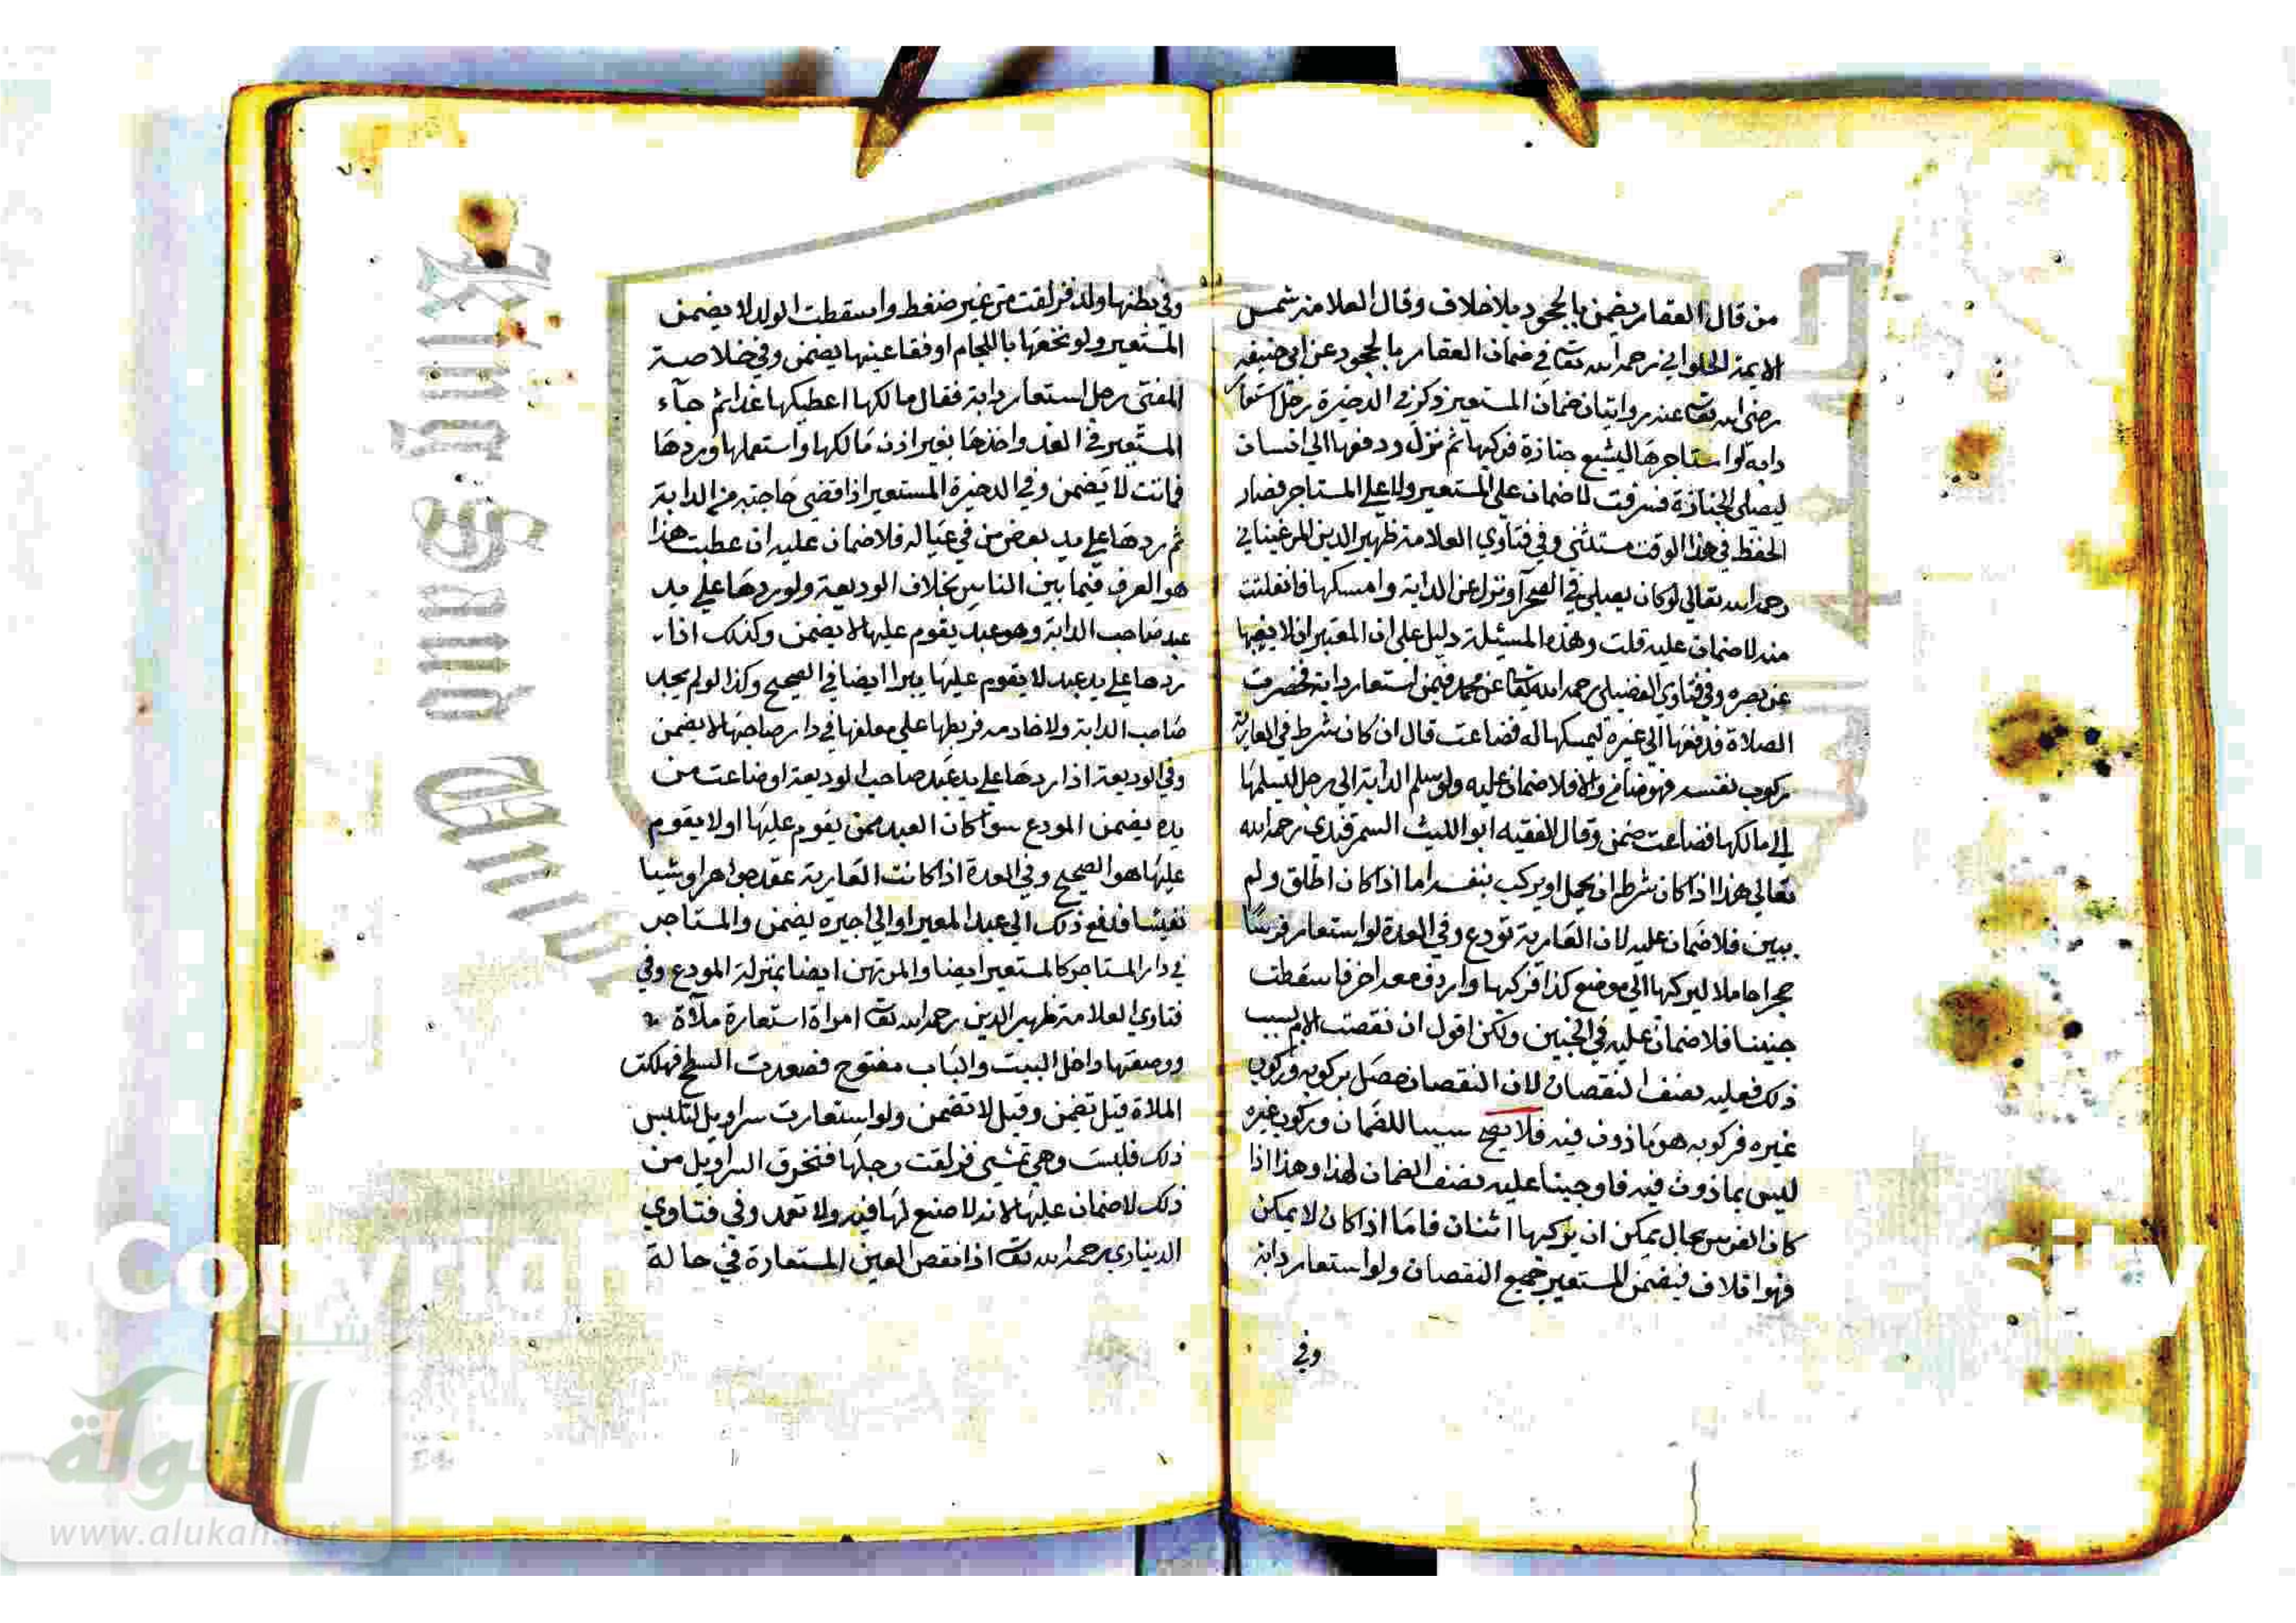 من قال العقار يضمن بالجحود بلا خلاف وقال العلامة شمس
الايمة الحلواني رحمه الله تعا في ضمان العقار بالجحود عن ابي حنيفه
رضي الله تعا عنه روايتان ضمان المستعير ذكر في الدخيرة رجل استعار
دابه او استاجرها ليشيع جنازة فركبها ثم نزل ودفعها الي انسان
ليصلي الجنازة فسرقت لا ضمان علي المستعير ولا علي المستاجر فصار
الحفظ في هذا الوقت مستثني وفي فتاوي العلامة ظهير الدين المرغيناني
رحمه الله تعالي لو كان يصلي في الصحرآ ونزل عن الدابة وامسكها فانفلتت
منه لا ضمان عليه قلت وهذه المسئلة دليل علي ان المعتبر ان لا يغيبها
عن بصره وفي فتاوي الفضيلي رحمه الله تعا عن محمد فيمن استعار دابة فحضرت
الصلاة فدفعها الي غيره ليمسكها له فضاعت قال ان كان شرط في العارية
ركوب نفسه فهو ضامن والا فلا ضمان عليه ولو سلم الدابة الي رجل ليسلمها
الي مالكها فضاعت ضمن وقال الفقيه ابو الليث السمرقندي رحمه الله
تعالي هذا اذا كان شرط ان يحمل او يركب بنفسه اما اذا كان اطلق ولم
يبين فلا ضمان عليه لان العارية تودع وفي العدة لو استعار فرسا
حجرا حاملا ليركبها الي موضع كذا فركبها واردف معه اخر فاسقطت
جنينا فلا ضمان عليه في الجنين ولكن اقول ان نقصت الام بسبب
ذلك فعليه نصف النقصان لان النقصان حصل بركوبه وركوب
غيره فركوبه هو ماذون فيه فلا يصح سببا للضمان وركوب غيره
ليس بماذون فيه فاوجبنا عليه نصف الضمان لهذا وهذا اذا
كان الفرس بحال يمكن ان يركبها اثنان فاما اذا كان لا يمكن
فهو اتلاف فيضمن المستعير جميع النقصان ولو استعار دابة
وفي
وفي بطنها ولد فزلقت من غير ضغط واسقطت الولد لا يضمن
المستعير ولو نخعها باللجام او فقا عينها يضمن وفي خلاصة
المفتي رجل استعار دابة فقال مالكها اعطيكها غدا ثم جآء
المستعير في الغد واخذها بغير اذن مالكها واستعملها وردها
فماتت لا يضمن وفي الدخيرة المستعير اذا قضي حاجته من الدابة
ثم ردها علي يد بعض من في عياله فلا ضمان عليه ان عطبت هذا
هو العرف فيما بين الناس بخلاف الوديعة ولو ردها علي يد
عبد صاحب الدابة وهو عبد يقوم عليها لا يضمن وكذلك اذا
ردها علي يد عبد لا يقوم عليها يبرا ايضا في الصحيح وكذا لو لم يجد
صاحب الدابة ولا خادمه فربطها علي معلفها في دار صاحبها لا يضمن
وفي الوديعة اذا ردها علي يد عبد صاحب الوديعة او ضاعت من
يده يضمن المودع سوآ كان العبد ممن يقوم عليها او لا يقوم
عليها هو الصحيح وفي العدة اذا كانت العارية عقد جواهر او شيا
نفيسا فدفع ذلك الي عبد المعير او الي اجيره يضمن والمستاجر
في دار المستاجر كالمستعير ايضا والمرتهن ايضا بمنزلة المودع وفي
فتاوي العلامة ظهير الدين رحمه الله تعا امراة استعارة ملآة
ووضعتها داخل البيت والباب مفتوح فصعدت السطح فهلكت
الملاة قيل تضمن وقيل لا تضمن ولو استعارت سراويل لتلبس
ذلك فلبست وهي تمشي فزلقت رجلها فتخرق السراويل من
ذلك لا ضمان عليها لانه لا صنع لها فيه ولا تعمد وفي فتاوي
الديناري رحمه الله تعا اذا نقص العين المستعارة في حالة
Copyright
sity
King Saud
شبكة
الألوكة
www.alukah.net